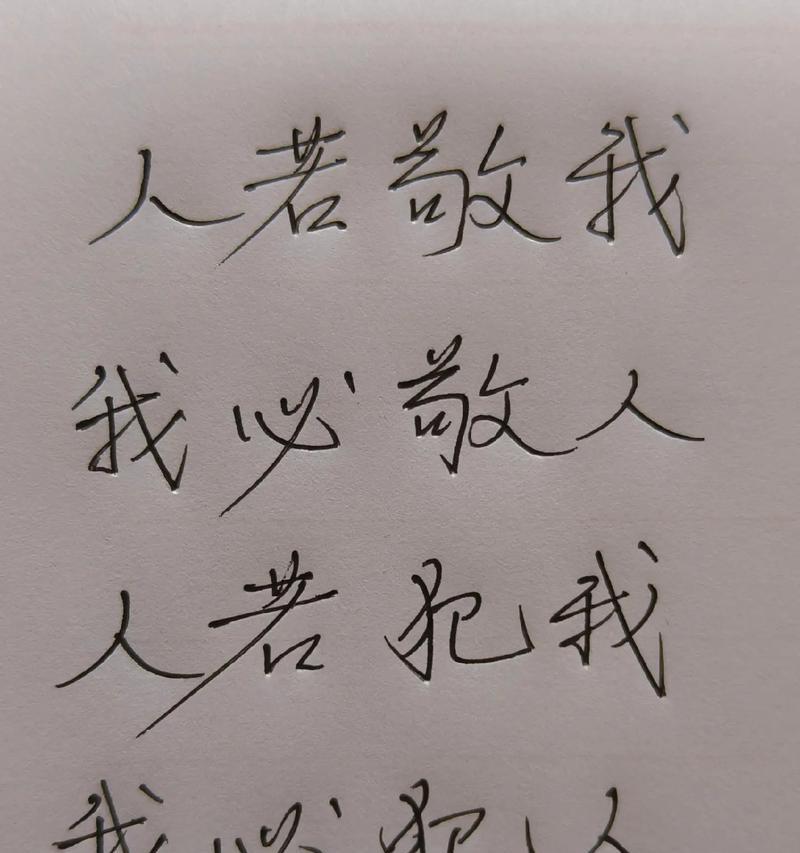 人若敬我
我必敬人
人若犯我
我必犯人